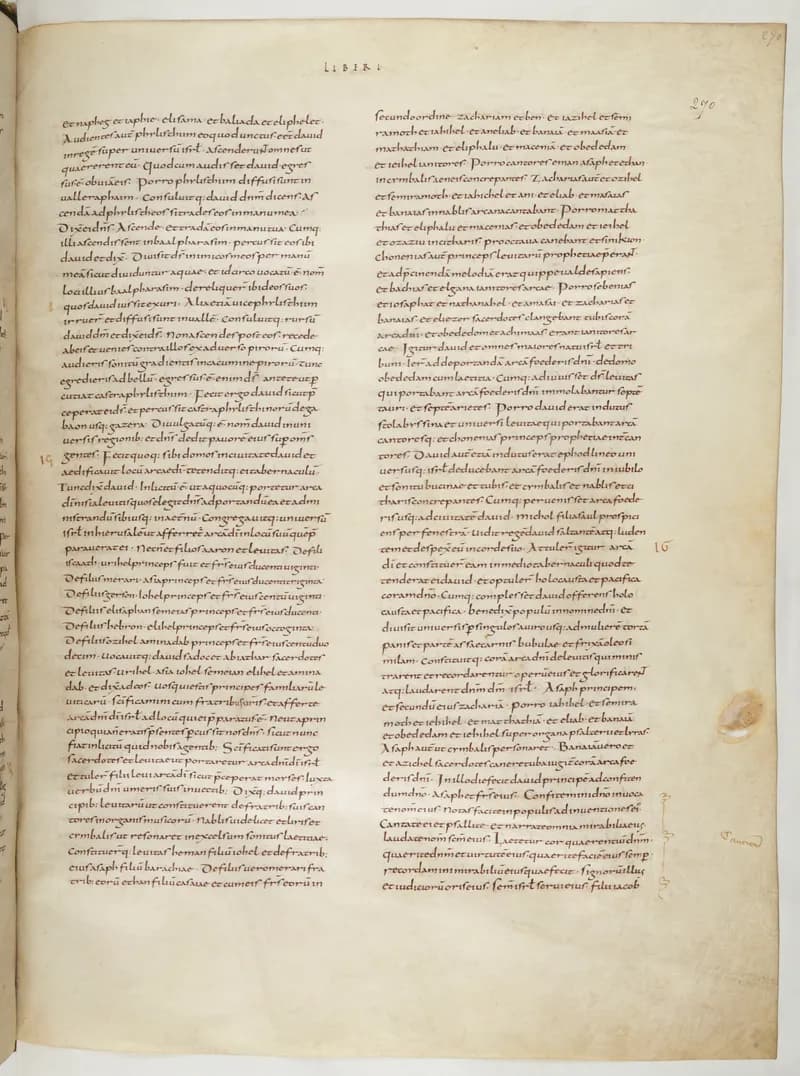 LIBERI
290
et napheg et iaphie · elisama · et baliada et eliphelet ·
Audiens aut̄ phylisthiim eo quod unctus e͞et dauid
in regē super uniuersū isrl̄ · Ascenderunt omnes ut
quaererent eū · Quod cum audisset dauid · egres
sus ē obuiā eis · Porro phylisthiim diffusi sunt in
ualle raphaim · Consuluitq; dauid dn̄m dicens · As
cendā ad phylistheos si trades eos in manu mea ·
Dixit ei dn̄s · Ascende · et tradā eos in manu tua · Cumq;
illi ascendissent in baalpharasim · percussit eos ibi
dauid et dix̄ · Diuisit ds̄ inimicos meos per manū
meā sicut diuiduntur aquae · et idcirco uocatū ē nom̄
loci illius baalpharasim · dereliquer̄ ibi deos suos ·
quos dauid iussit exuri · Alia etiā uice phylisthiim
irruer̄ et diffusi sunt in ualle · Consuluitq; rursū
dauid dm̄ et dixit ei ds̄ · Non ascendes post eos · recede
ab eis et uenies contra illos ex aduerso pirorū · Cumq;
audieris sonitū gradientis in cacumine pirorū · tunc
egredieris ad bellū · egressus ē enim ds̄ ante te ut p
cutiat castra phylisthiim · Fecit ergo dauid sicut p̄
ceperat ei ds̄ · et percussit castra phylisthinorū de ga
baon usq; gazera · Diuulgatūq; ē nom̄ dauid in uni
uersis regionib; et dn̄s dedit pauorē eius super om̄s
15
gentes · Fecit quoq; sibi domos in ciuitate dauid et
aedificauit locū arcae dī · tetenditq; ei tabernaculū ·
Tunc dix̄ dauid · Inlicitū ē ut a quocūq; portetur arca
dī nisi a leuitis quos elegit dn̄s ad portandū eā et ad mi
nistrandū sibi usq; in aet̄nū · Congregauitq; uniuersū
isrl̄ in hierusalē ut afferret̄ arca dī in locū suū quē p̄
parauerat ei · Necn̄ et filios aaron et leuitas · De filiis
caath · urihel princeps fuit et frs̄ eius ducenti uiginti ·
De filiis merari · asia princeps et frs̄ eius ducenti triginta ·
De filiis gersom · iohel princeps et frs̄ eius centū uiginti ·
De filiis elisaphan semeias princeps et frs̄ eius ducenti ·
De filiis hebron · elihel princeps et frs̄ eius octoginta ·
De filiis ozihel aminadab princeps et frs̄ eius centū duo
decim · Uocauitq; dauid sadoc et abiathar sacerdotes
et leuitas · Urihel · asia iohel semeian elihel et amina
dab · et dix̄ ad eos · Uos qui estis principes familiarū le
uiticarū · scificamini cum fratribus uestris et afferte
arcā dn̄i dī isrl̄ ad locū qui ei p̄paratus ē · Ne ut a prin
cipio quia n̄ eratis p̄sentes percussit nos dn̄s · sic et nunc
fiat inlicitū quid nobis agentib; · Scīficati sunt ergo
sacerdotes et leuitae ut portarent arcā dn̄i dī isrl̄ ·
et tuler̄ filii leui arcā dī sicut p̄ceperat moyses · iuxta
uerbū dn̄i umeris suis in uectib; · Dixitq; dauid prin
cipib; leuitarū ut constituerent de fratrib; suis can
tores in organis musicorū · Nablis uidelicet et lyris et
cymbalis ut resonaret in excelsum sonitus laetitiae ·
Constituer̄q; leuitas heman filiū iohel et de fratrib;
eius asaph filiū barachiae · De filiis uero merari fra
trib; eorū ethan filiū casaiae et cum eis frs̄ eorū in
secundo ordine · zachariam et ben · et iazihel et semi
ramoth et iahihel · et ani eliab · et banaiā · et maasiā · et
mathathiam · et eliphalu · et maceniā · et obededam
et ieihel ianitores · Porro cantores eman asaph et ethan
in cymbalis aeneis concrepantes · Zacharias aut̄ et ozihel
et semiramoth · et iahihel et ani · et eliab · et maasias
et banaias in nablis arcana cantabant · Porro matha
thias et eliphalu et macenias et obededam et ieihel
et ozaziu in citharis · pro octaua canebant epinikion ·
Chonenias aut̄ princeps leuitarū prophetiae p̄erat
et ad p̄cinendā melodiā · erat quippe ualde sapiens ·
et bachias et elgana ianitores arcae · Porro sebenias
et iosaphat et nathanahel · et amasai · et zacharias et
banaias · et eliezer sacerdotes clangebant tubis corā
arca dn̄i · et obededom et achimaas erant ianitores ar
cae · Igitur dauid et omnes maiores natu isrl̄ · et tri
buni · Ier̄ ad deportandā arcā foederis dn̄i · de domo
obededam cum laetitia · Cumq; adiuuisset ds̄ leuitas
qui portabant arcā foederis dn̄i · immolabantur septē
tauri · et septē arietes · Porro dauid erat indutus
stola byssina et uniuersi leuitae qui portabant arcā
cantoresq; et chonenias princeps prophetiae int̄ can
tores · Dauid aut̄ etiā indutus erat ephod lineo · uni
uersusq; isrl̄ deducebant arcā foederis dn̄i in iubilo
et sonitu bucinae · et tubis · et cymbalis et nablis et ci
tharis concrepantes · Cumq; peruenisset arca foede
ris usq; ad ciuitatē dauid · michol filia saul prospici
ens per fenestrā · Uidit regē dauid saltantē atq; luden
tem et despexit eū in corde suo · Attuler̄ igitur arcā
16
dī et constituer̄ eam in medio tabernaculi quod te
tenderat ei dauid · et optuler̄ holocausta et pacifica
coram dn̄o · Cumq; complesset dauid offerens holo
causta et pacifica · benedix̄ populū in nomine dn̄i · et
diuisit uniuersis p̄ singulos a uiro usq; ad mulierē tortā
panis et partē assae carnis bubulae · et frixā oleo si
milam · Constituitq; corā arca dn̄i de leuitis qui minis
trarent et recordarentur operū eius et glorificarent
atq; laudarent dn̄m dm̄ isrl̄ · Asaph principem ·
et secundū eius zachariā · porro iahihel · et semira
moth et iehihel · et matthathiā · et eliab · et banaiā
et obededam et iehihel super organa psalterii et lyras ·
Asaph aut̄ ut cymbalis personaret · Banaiā uero et
et azihel sacerdotes canere tuba iugit̄ corā arca foe
deris dn̄i · In illo die fecit dauid principē ad confiten
dum dn̄o · Asaph et frs̄ eius · Confitemini dn̄o inuoca
te nom̄ eius · Notas facite in populis adinuentiones ei ·
Cantate ei et psallite · et narrate omnia mirabilia eius
laudate nom̄ scm̄ eius · Laetetur cor quaerentiū dn̄m ·
quaerite dn̄m et uirtutē eius · quaerite faciē eius semp̄ ·
recordamini mirabiliū eius quae fecit · signorū illius
et iudiciorū oris eius · semen isrl̄ serui eius · filii iacob